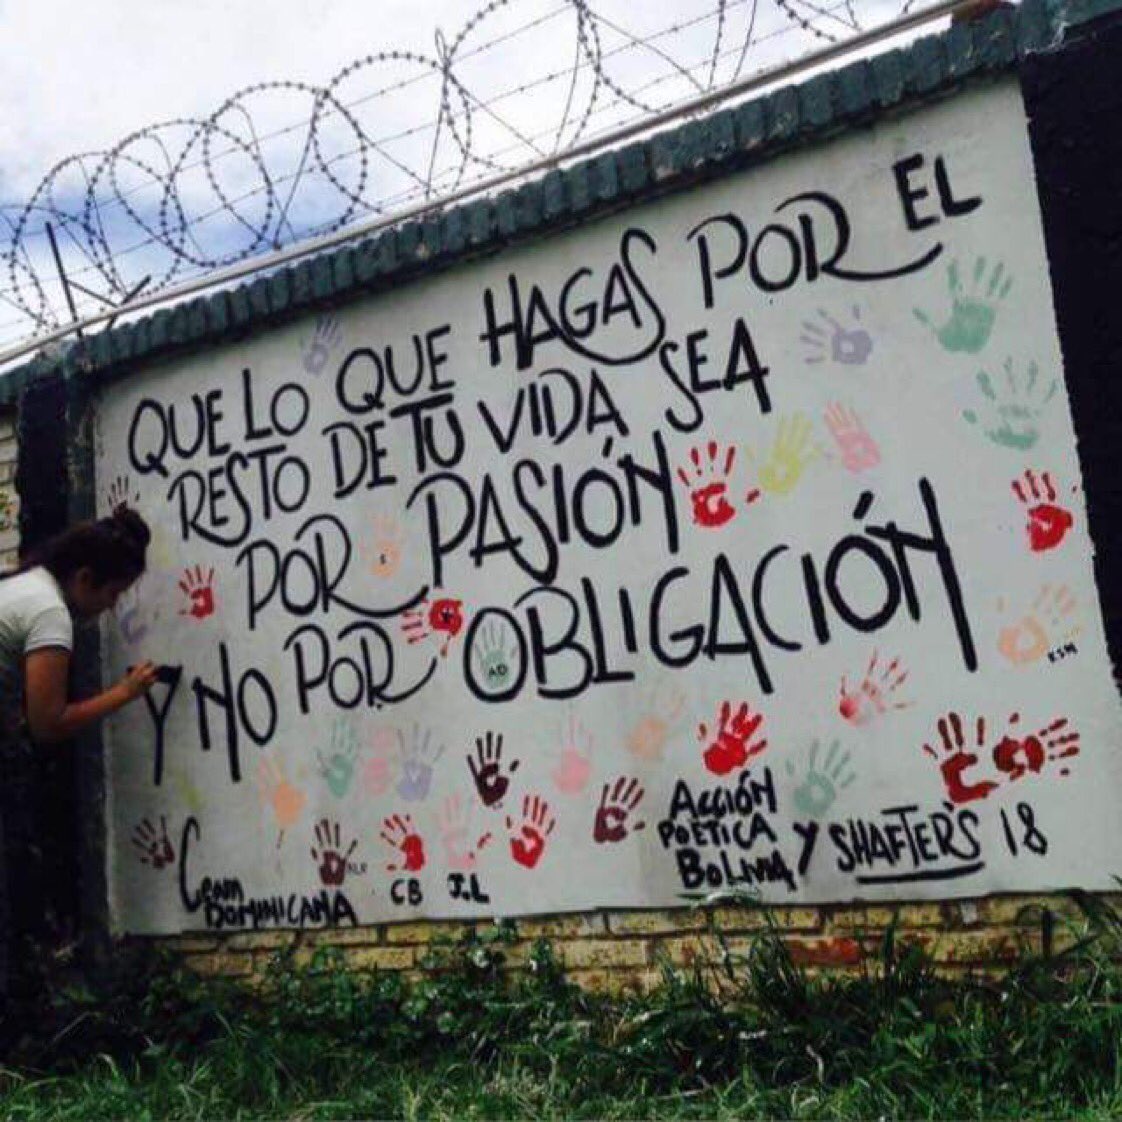 QUE LO QUE HAGAS POR EL
RESTO DE TU VIDA SEA
POR PASIÓN
Y NO POR OBLIGACIÓN
AD
KSM
ACCIÓN
POÉTICA
BOLIVIA Y SHAFTER'S 18
DOMINICANA
CB J.L